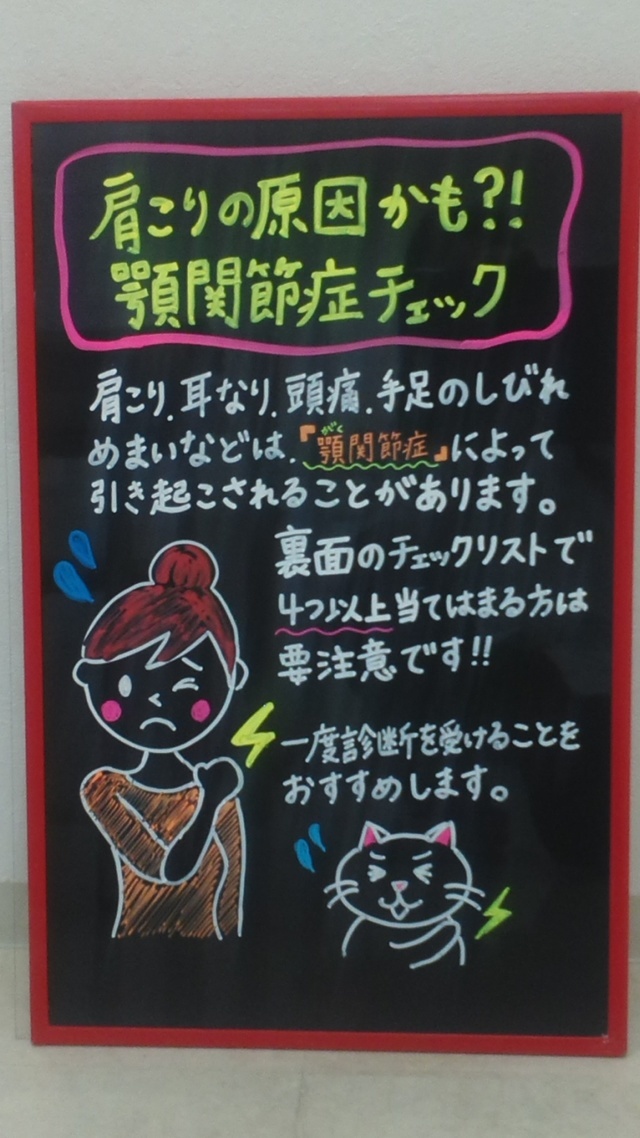 肩こりの原因かも?!
顎関節症チェック
肩こり.耳なり.頭痛.手足のしびれ
めまいなどは.『顎関節症』によって
がく
引き起こされることがあります。
裏面のチェックリストで
4つ以上当てはまる方は
要注意です!!
一度診断を受けることを
おすすめします。